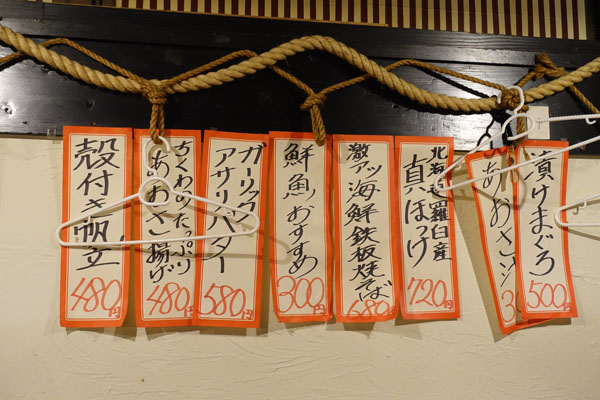 殻付き帆立
480円
ちくわのたっぷり
あおさ揚げ
480円
ガーリック
アサリバター
580円
鮮魚おすすめ
300円
激アツ海鮮鉄板焼そば
680円
北海道羅臼産
真ほっけ
720円
あおさ
3
漬けまぐろ
500円